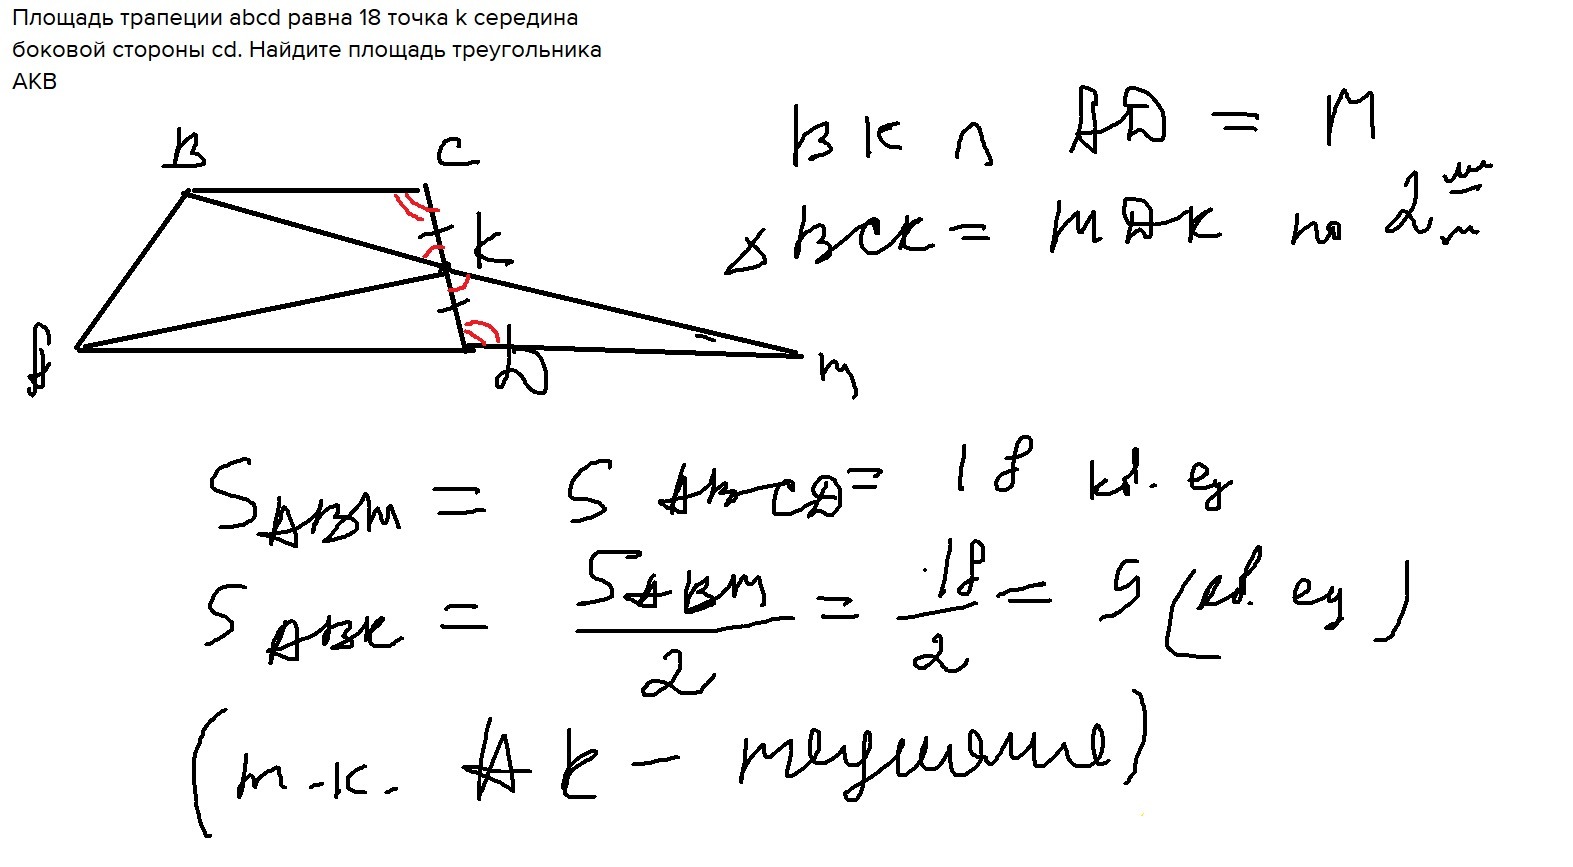 Площадь трапеции abcd равна 18 точка k середина
боковой стороны cd. Найдите площадь треугольника
АКВ
B C
K
A D M
BK ∩ AD = M
△ BCK = MDK по 2
S ABM = S ABCD = 18 кв. ед
S ABK = S ABM / 2 = 18 / 2 = 9 (кв. ед)
(т.к. AK - медиана)